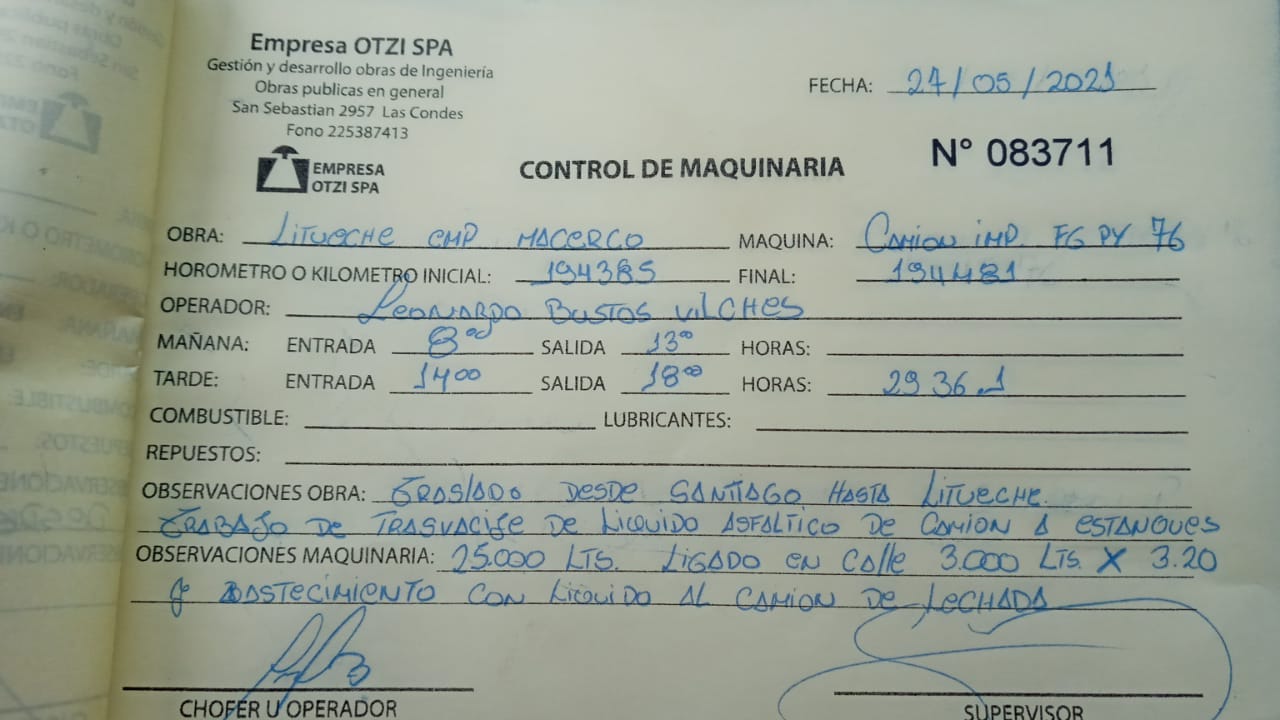 Empresa OTZI SPA
Gestión y desarrollo obras de Ingeniería
Obras publicas en general
San Sebastian 2957 Las Condes
Fono 225387413
EMPRESA
OTZI SPA
FECHA: 27/05/2021
N° 083711
CONTROL DE MAQUINARIA
OBRA: LITUECHE EMP MACERCO MAQUINA: CAMION IMP. FG PY 76
HOROMETRO O KILOMETRO INICIAL: 194385 FINAL: 194481
OPERADOR: LEONARDO BUSTOS VILCHES
MAÑANA: ENTRADA 8°° SALIDA 13°° HORAS:
TARDE: ENTRADA 14°° SALIDA 18°° HORAS: 2936.1
COMBUSTIBLE: LUBRICANTES:
REPUESTOS:
OBSERVACIONES OBRA: TRASLADO DESDE SANTIAGO HASTA LITUECHE.
TRABAJO DE TRASVACIJE DE LIQUIDO ASFALTICO DE CAMION A ESTANQUES
OBSERVACIONES MAQUINARIA: 25.000 LTS. LIGADO EN CALLE 3.000 LTS. X 3.20
ABASTECIMIENTO CON LIQUIDO AL CAMION DE LECHADA
CHOFER U OPERADOR SUPERVISOR